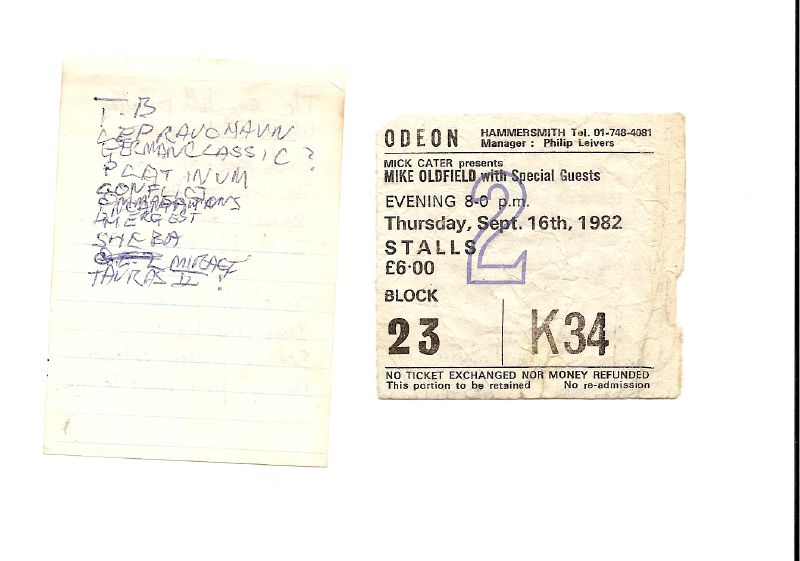 T.B
LEPRAUCHAUN
GERMAN CLASSIC ?
PLATINUM
CONFLICT
INCANTATIONS
HERGEST
SHEBA
MIRAGE
TAURAS II !
ODEON
HAMMERSMITH Tel. 01-748-4081
Manager : Philip Leivers
MICK CATER presents
MIKE OLDFIELD with Special Guests
EVENING 8-0 p.m.
Thursday, Sept. 16th, 1982
STALLS
£6·00
2
BLOCK
23 K34
NO TICKET EXCHANGED NOR MONEY REFUNDED
This portion to be retained No re-admission